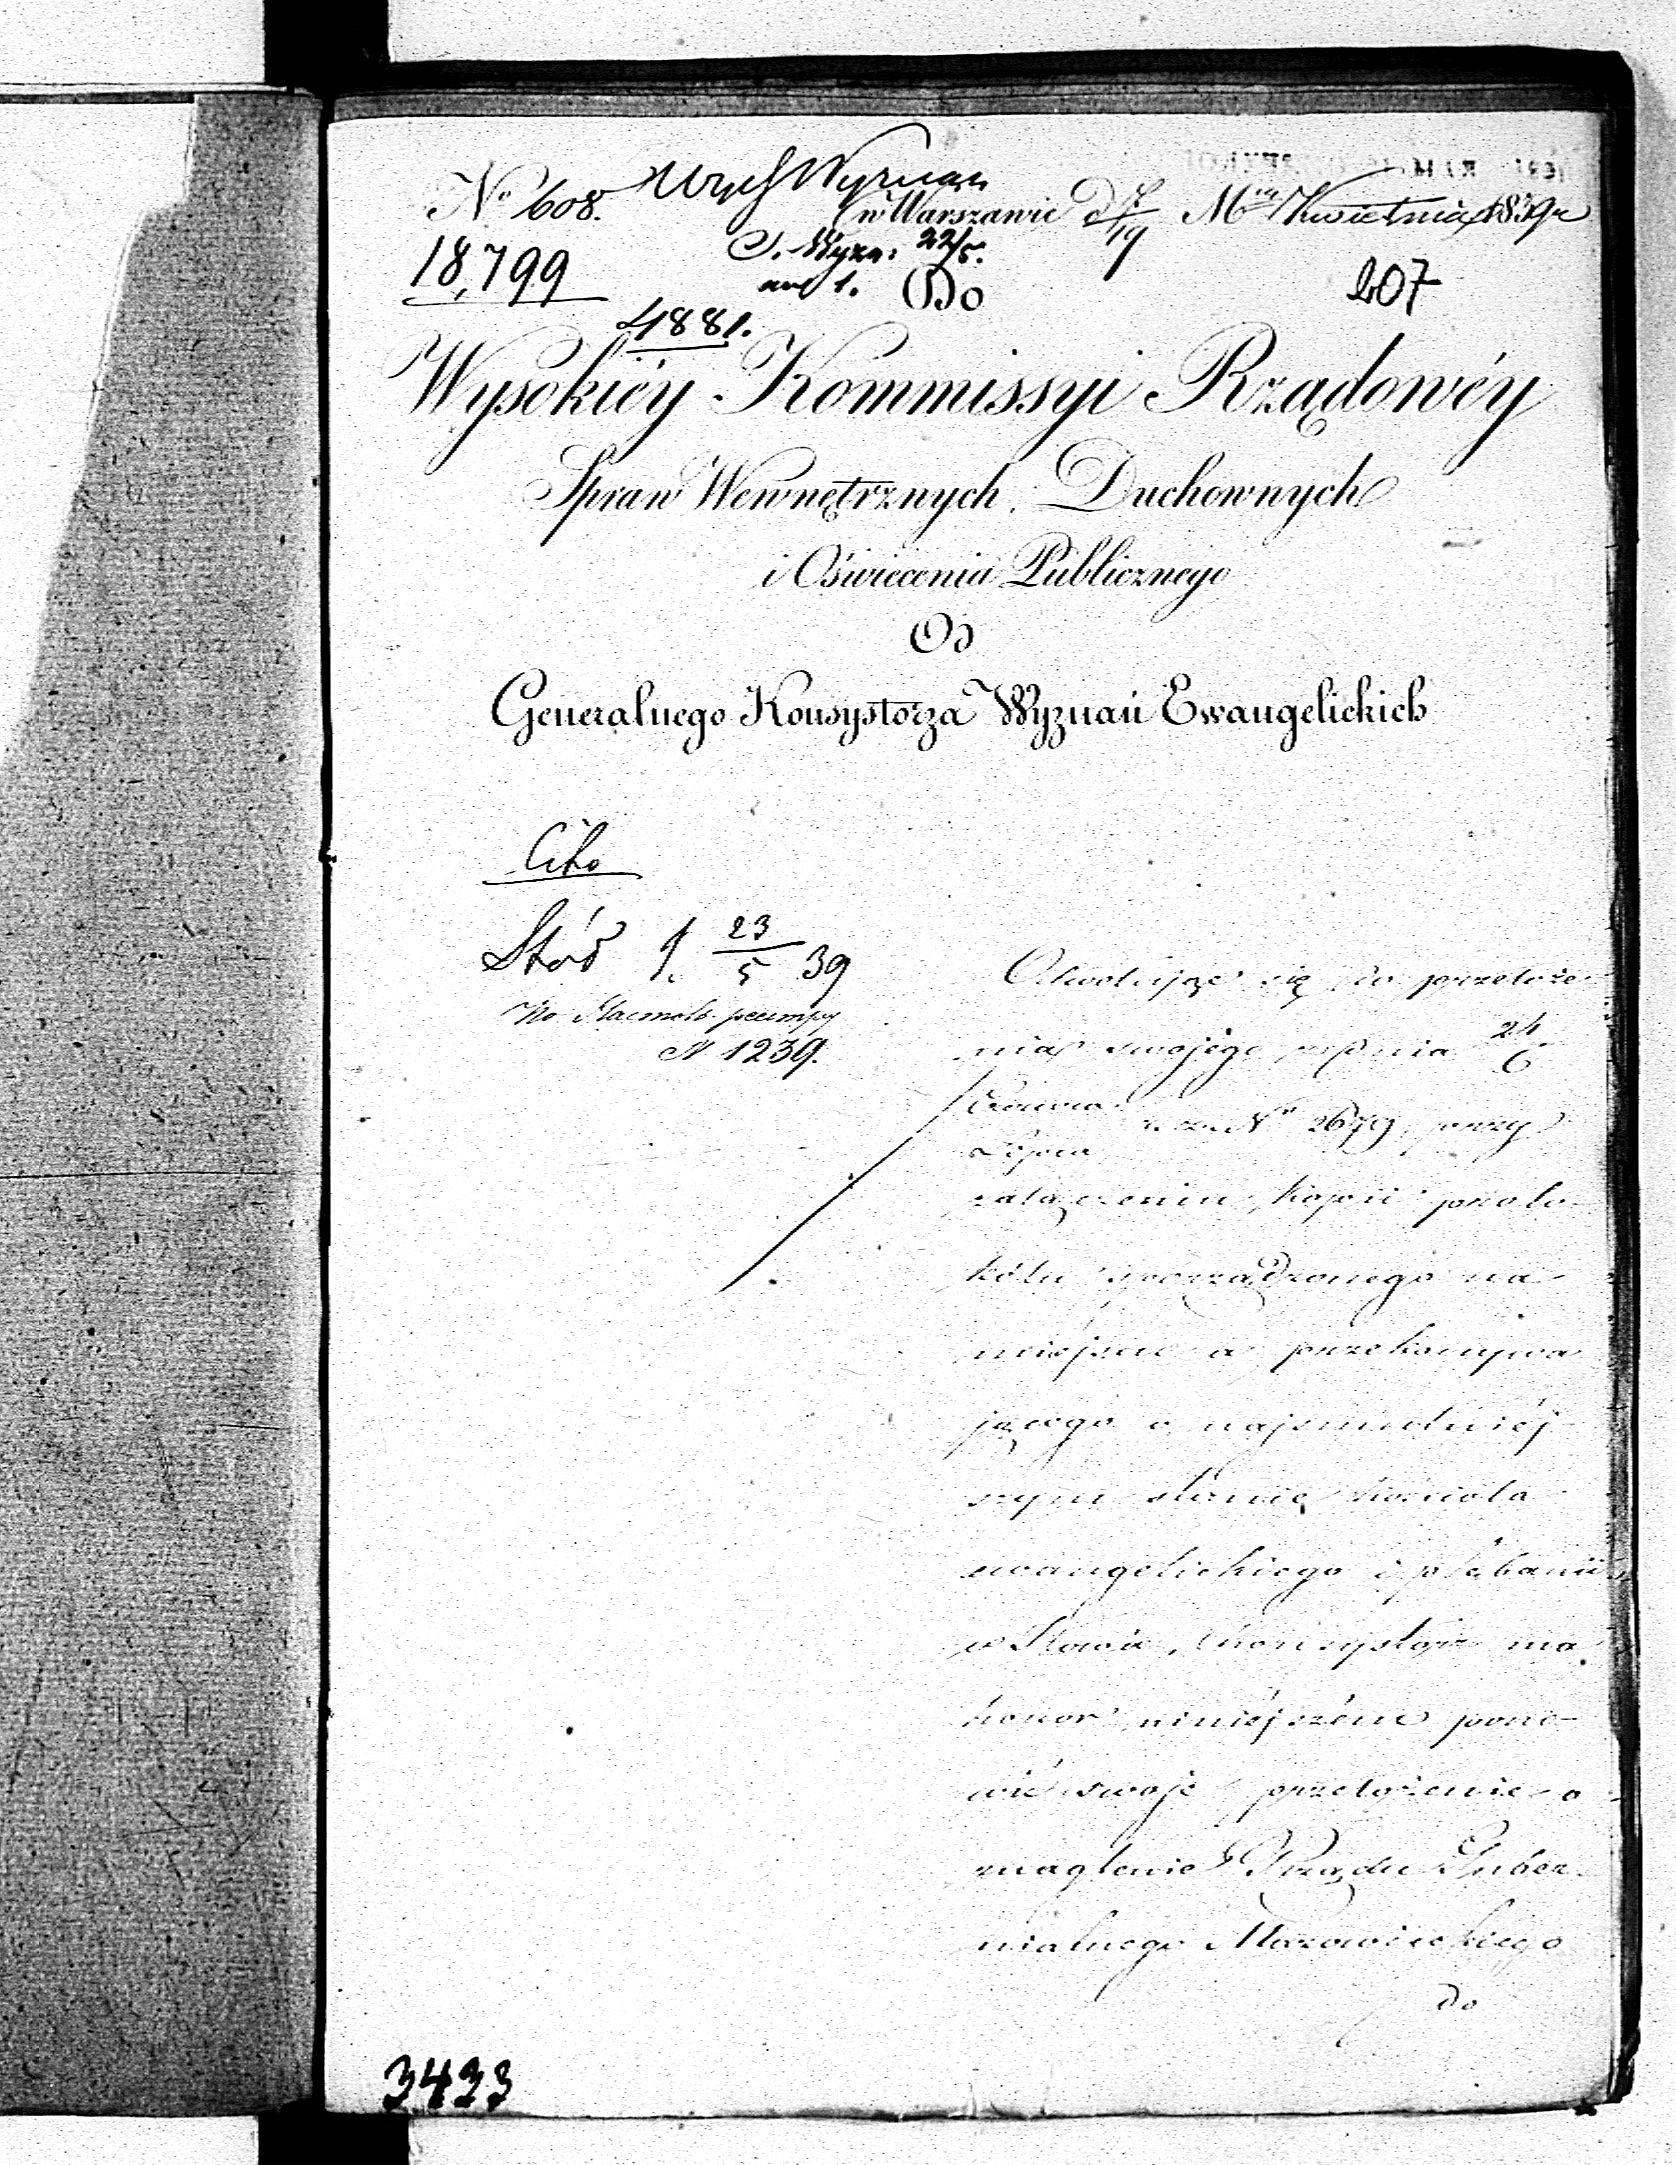 No 608. Wych Wyznań
w Warszawie d 7/19 Mca Kwietnia 1839 r
18,799 S. Wyzn: 22/5.
an 1. Do 207
4881.
Wysokiéy Kommissyi Rządowéy
Spraw Wewnętrznych, Duchownych
i Oświecenia Publicznego
Od
Generalnego Konsystorza Wyznań Ewangelickich
Cito
23/5 39
N 1239.
Odwołując się do przełoże-
nia swojego z dnia 24/6
Czerwca
Lipca
r. z. No 2679, przy
załączeniu kopii proto-
kółu sporządzonego na
miejscu a przekonywa
jącego o najsmutniéj
szym stanie kościoła
ewangelickiego i plebanii
w Iłowie, Konsystorz ma
honor niniéjszém pono-
wić swoje przełożenie o
naglenie Rządu Guber
nialnego Mazowieckiego
do
3433